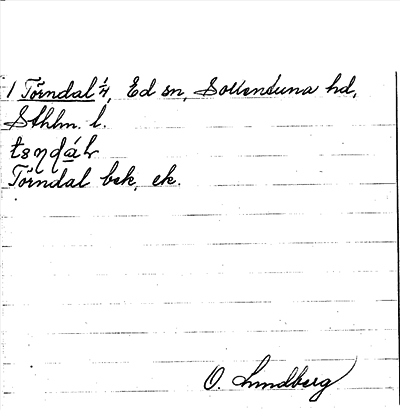 1 Törndal 1/4, Ed sn, Sollentuna hd,
Sthlm. l.
Törndal bek, ek.
O. Lundberg